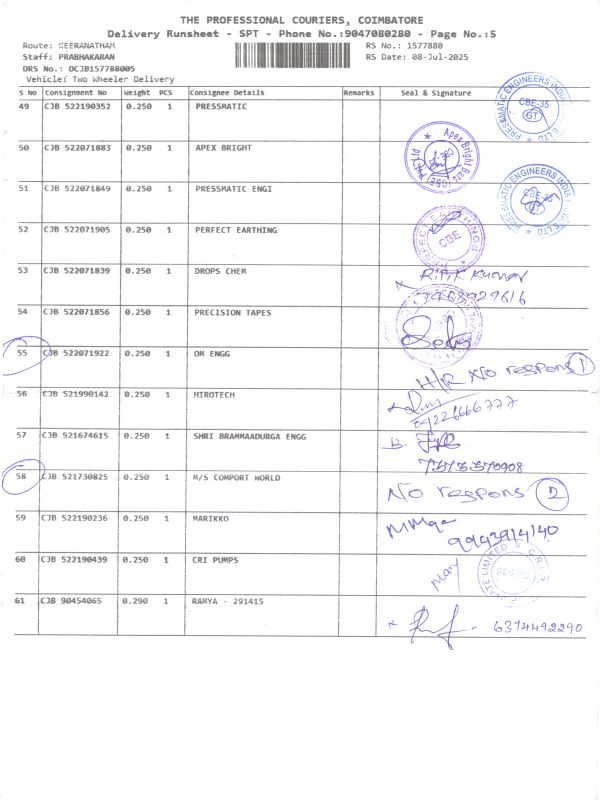 THE PROFESSIONAL COURIERS, COIMBATORE
Delivery Runsheet - SPT - Phone No.:9047080280 - Page No.:5
Route: KEERANATHAM RS No.: 1577880
Staff: PRABHAKARAN RS Date: 08-Jul-2025
DRS No.: DCJB157788005
Vehicle: Two Wheeler Delivery
S No Consignment No Weight PCS Consignee Details Remarks Seal & Signature
49 CJB 522190352 0.250 1 PRESSMATIC
PRESSMATIC ENGINEERS INDIA LTD CBE-35 GT
50 CJB 522071883 0.250 1 APEX BRIGHT
Apex Bright Bars
51 CJB 522071849 0.250 1 PRESSMATIC ENGI
PRESSMATIC ENGINEERS INDIA LTD CBE-35 GT
52 CJB 522071905 0.250 1 PERFECT EARTHING
CBE
53 CJB 522071839 0.250 1 DROPS CHEM
54 CJB 522071856 0.250 1 PRECISION TAPES
55 CJB 522071922 0.250 1 OM ENGG
No respons 1
56 CJB 521990142 0.250 1 HIROTECH
57 CJB 521674615 0.250 1 SHRI BRAMMAADURGA ENGG
58 CJB 521730825 0.250 1 M/S COMPORT WORLD
No respons 2
59 CJB 522190236 0.250 1 MARIKKO
9943914140
60 CJB 522190439 0.250 1 CRI PUMPS
Mary
61 CJB 90454065 0.290 1 RAMYA - 291415
6374492290